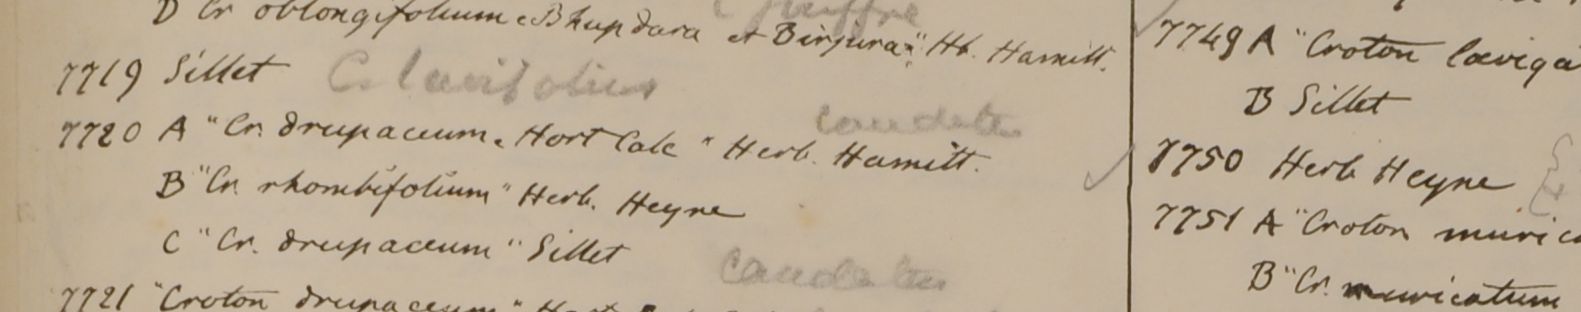 D Cr. oblongifolium "Bhupdara et Birjura" Hb. Hamilt.
7719 Sillet C. lævifolius
7720 A "Cr. drupaceum. Hort Calc" Herb. Hamilt. caudatus
B "Cr. rhombifolium" Herb. Heyne
C "Cr. drupaceum" Sillet
caudatus
7721 "Croton drupaceum" Hort
7749 A "Croton læviga
B Sillet
7750 Herb Heyne
7751 A "Croton muric
B "Cr. muricatum